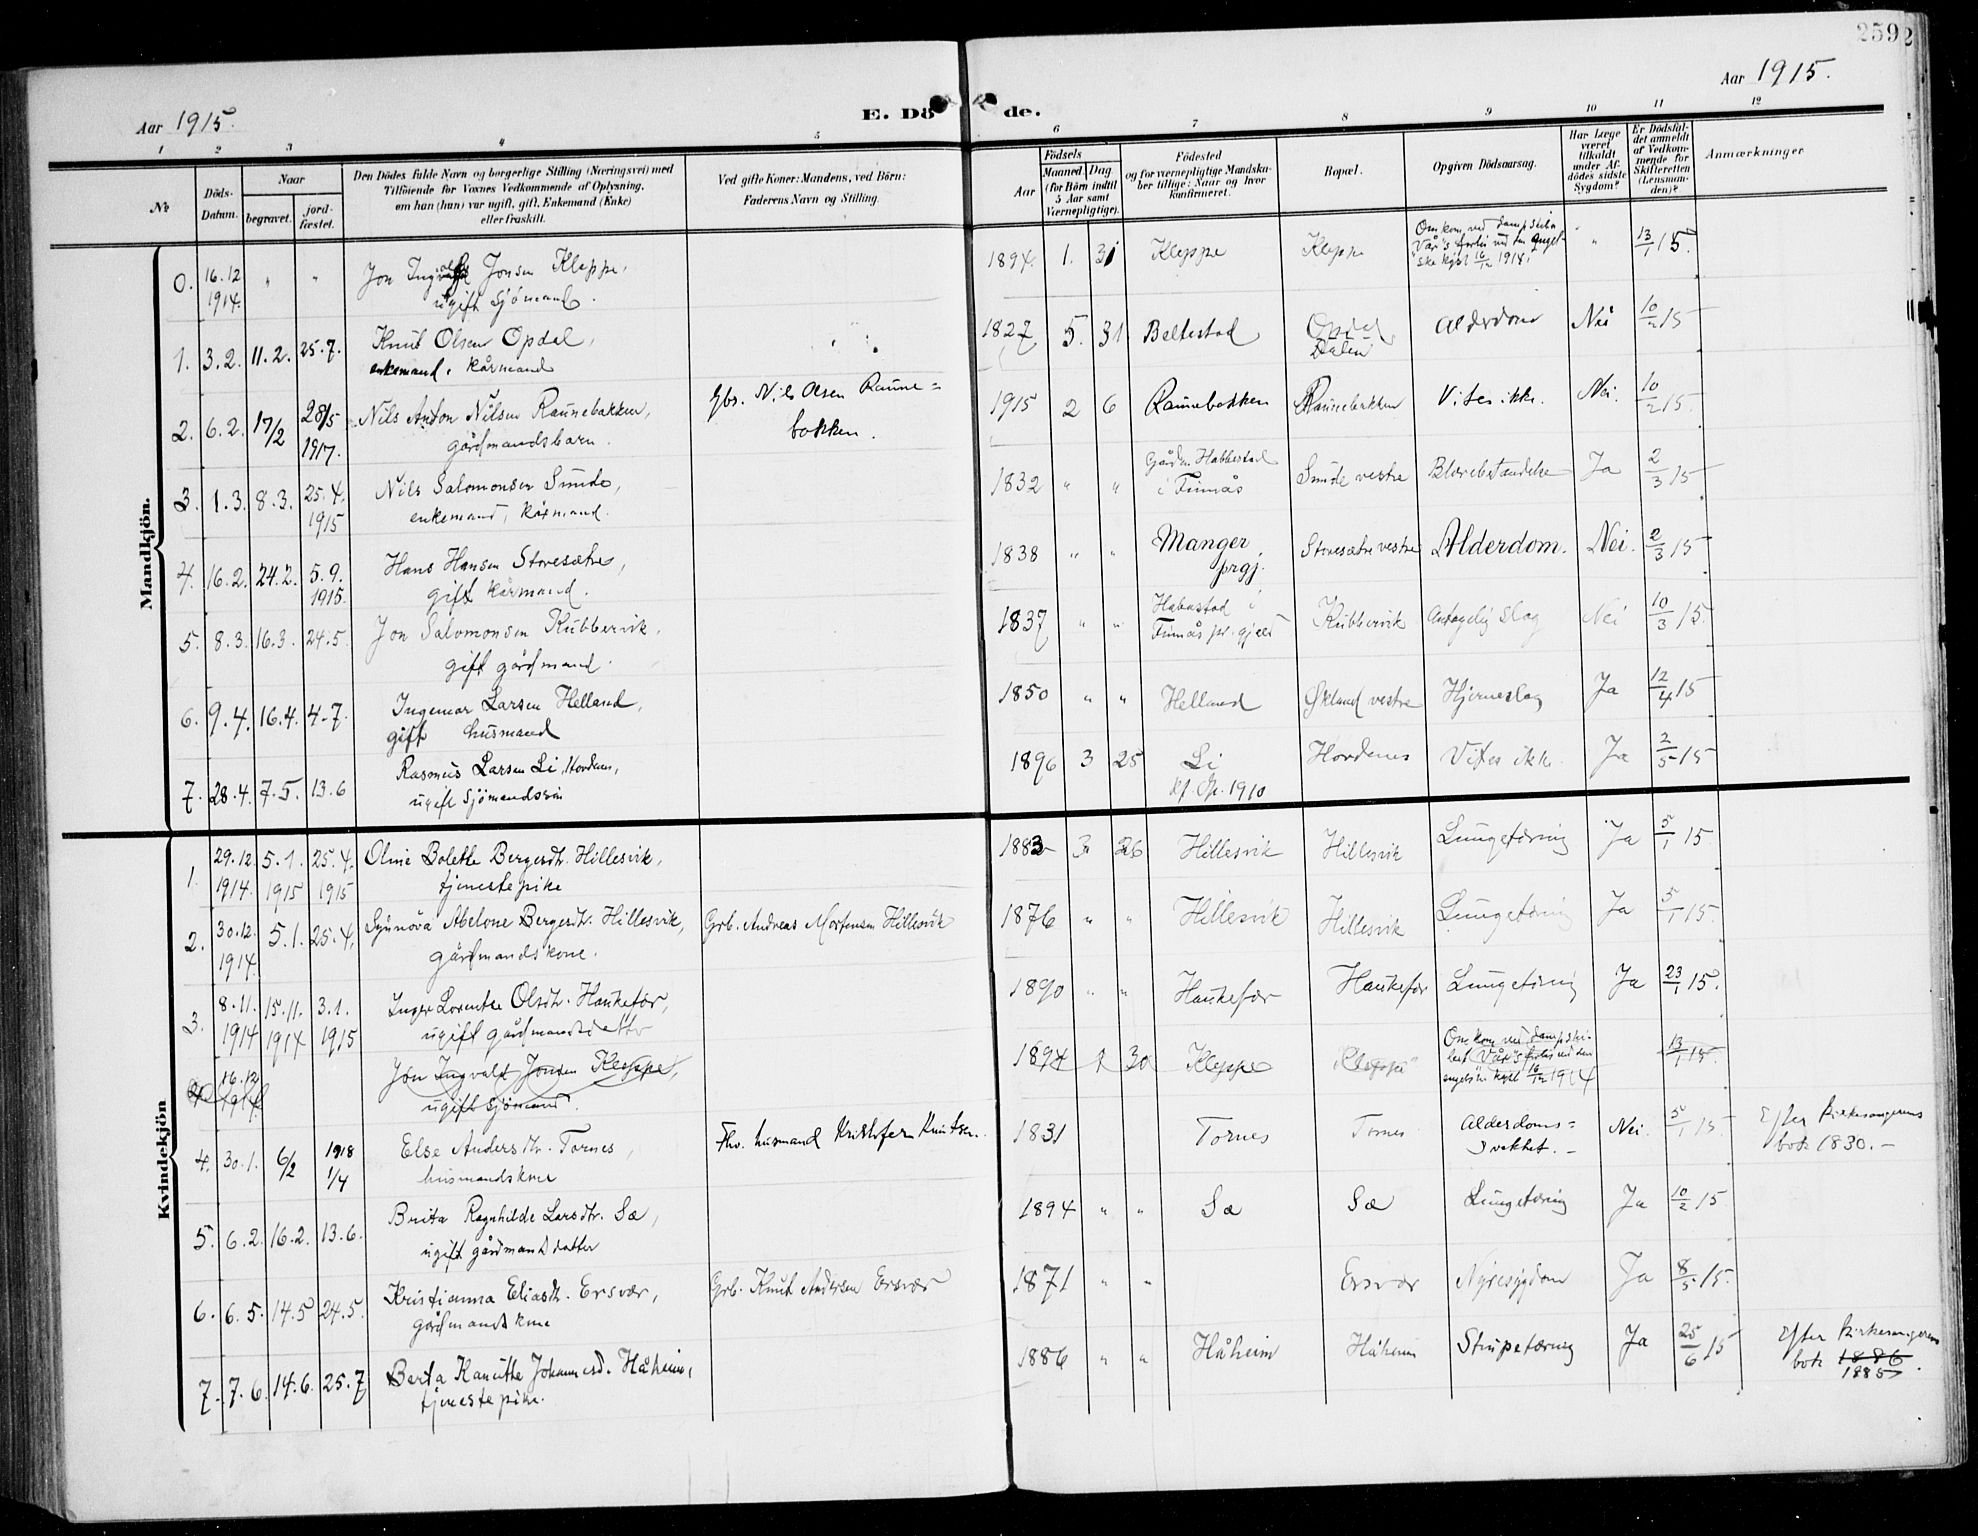 2592
Aar 1915.
E. Döde.
Aar 1915.
1 2 3 4 5 6 7 8 9 10 11 12
№
Döds-Datum.
Naar
begravet.
jord-fæstet.
Den Dödes fulde Navn og borgerlige Stilling (Næringsvei) med
Tilföiende for Voxnes Vedkommende af Oplysning,
om han (hun) var ugift, gift, Enkemand (Enke)
eller fraskilt.
Ved gifte Koner: Mandens, ved Börn:
Faderens Navn og Stilling.
Födsels
Aar
Maaned Dag
(for Börn indtil
5 Aar samt
Værnepligtige).
Födested
og for værnepligtige Mandska-
ber tillige: Naar og hvor
konfirmeret.
Bopæl.
Opgiven Dödsaarsag.
Har Læge
været
tilkaldt
under Af-
dödes sidste
Sygdom?
Er Dödsfal-
det anmeldt
af Vedkom-
mende for
Skifteretten
(Lensman-
den)?
Anmærkninger
Mandkjön.
0. 16.12 1914. " " Jon Ingvald Jonsen Kleppe, 1894. 1. 31 Kleppe Kleppe Omkom ved dampskibet "Vår"s forlis ved den engelske kyst 16/12 1914. " 13/1 15.
ugift sjömand.
1. 3.2. 11.2. 25.7. Knut Olsen Opdal, 1827 5. 31 Beltestad Opdal Dalen Alderdom Nei 10/2 15
enkemand, kårmand
2. 6.2. 17/2 28/5 1917. Nils Anton Nilsen Raunebakken, Gbr. Nils Olsen Raune= 1915 2 6 Raunebakken Raunebakken Vites ikke. Nei. 10/2 15.
gårdmandsbarn. bakken.
3. 1.3. 8.3. 25.4. 1915 Nils Salomonsen Sunde, 1832 " " Gården Habbestad i Finnås Sunde vestre Blærebetændelse Ja 2/3 15
enkemand, kårmand.
4. 16.2. 24.2. 5.9. 1915. Hans Hansen Storesætre, 1838 " " Manger prgj. Storesætre vestre Alderdom. Nei. 2/3 15
gift kårmand.
5. 8.3. 16.3. 24.5. Jon Salomonsen Kubbervik, 1837 " " Habestad i Finnås pr.gjeld Kubbervik Antagelig Slag Nei 10/3 15.
gift gårdmand.
6. 9.4. 16.4. 4.7. Ingemar Larsen Helland, 1850 " " Helland Økland vestre Hjerneslag Ja 12/4 15
gift husmand
7. 28.4. 7.5. 13.6 Rasmus Larsen Li, Hordenes, 1896 3 25 Li Hordenes Vites ikke. Ja 2/5 15
ugift Sjömandssön kf. Op. 1910
Kvindekjön
1. 29.12. 1914. 5.1. 1915 25.4. 1915 Oline Bolette Bergesdtr. Hillesvik, 1883 3 26 Hillesvik Hillesvik Lungetæring Ja 5/1 15.
tjenestepike
2. 30.12. 1914 5.1. 25.4. Synnöva Abelone Bergesdtr. Hillesvik, Grb. Andreas Mortensen Hillesvik 1876 " " Hillesvik Hillesvik Lungetæring Ja 5/1 15.
gårdmandskone.
3. 8.11. 1914 15.11. 1914 3.1. 1915 Inger Lorentse Olsdtr. Haukefær, 1890 " " Haukefær Haukefær Lungetæring Ja 23/1 15.
ugift gårdmandsdatter
4 16.12 1914 Jon Ingvald Jonsen Kleppe, 1894 1 30 Kleppe Kleppe Omkom ved dampskibet "Vår"s forlis ved den engelske kyst 16/12 1914 13/1 15.
ugift sjömand.
4. 30.1. 6/2 1918 1/4 Else Andersdtr. Tornes, Fhv. husmand Kristofer Knutsen. 1831 Tornes Tornes Alderdoms= svakhet. Nei. 5/1 15. Efter Kirkesangerens
husmandskone bok 1830.
5. 6.2. 16.2. 13.6. Brita Ragnhilde Larsdtr. Sæ, 1894 " " Sæ Sæ Lungetæring Ja 10/2 15.
ugift gårdmandsdatter
6. 6.5. 14.5 24.5. Kristianna Eliasdtr. Ersvær, Grb. Knut Andersen Ersvær 1871 " " Ersvær Nyresygdom Ja 8/5 15.
gårdmandskone
7. 7.6. 14.6. 25.7 Berta Kanutte Johannesd. Håheim, 1886 " " Håheim Håheim Strupetæring Ja 25/6 15 Efter Kirkesangerens
tjenestepike. bok 1886 1885.